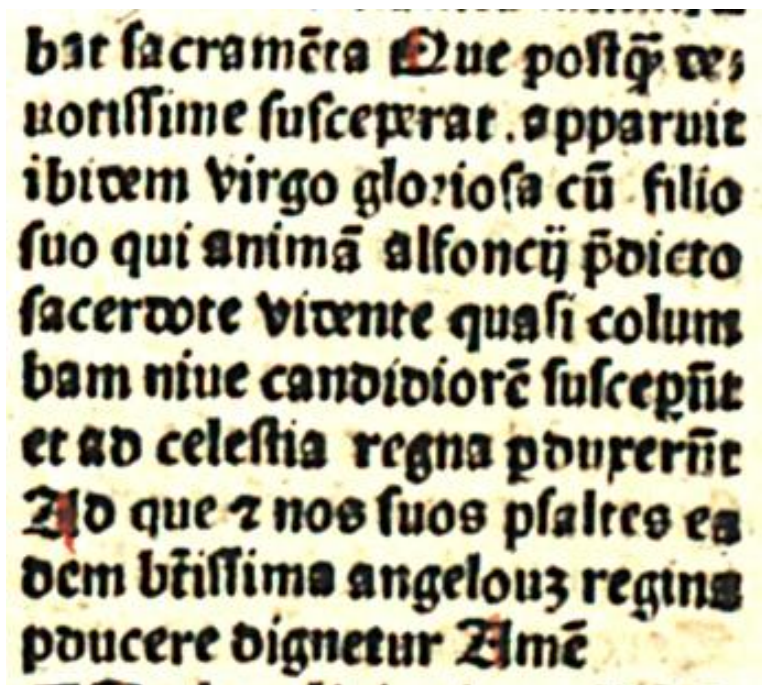 bat sacramēta Que postq̄ de⸗
uotissime susceperat . apparuit
ibidem virgo gloriosa cū filio
suo qui animā alfoncij p̄dicto
sacerdote vidente quasi colum
bam niue candidiorē susceperūt
et ad celestia regna ꝑduxerūt
Ad que ⁊ nos suos psaltes ea
dem btīssima angelouꝫ regina
pducere dignetur Amē